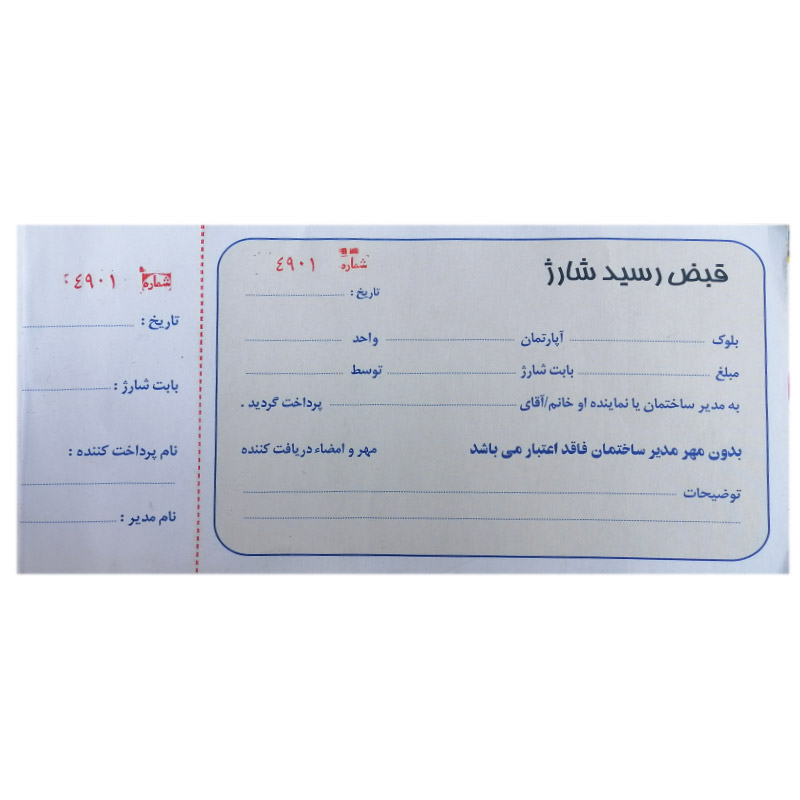 قبض رسید شارژ
شماره ٤٩٠١
تاریخ :
بلوک آپارتمان واحد
مبلغ بابت شارژ توسط
به مدیر ساختمان یا نماینده او خانم/آقای پرداخت گردید .
بدون مهر مدیر ساختمان فاقد اعتبار می باشد مهر و امضاء دریافت کننده
توضیحات
شماره ٤٩٠١
تاریخ :
بابت شارژ :
نام پرداخت کننده :
نام مدیر :